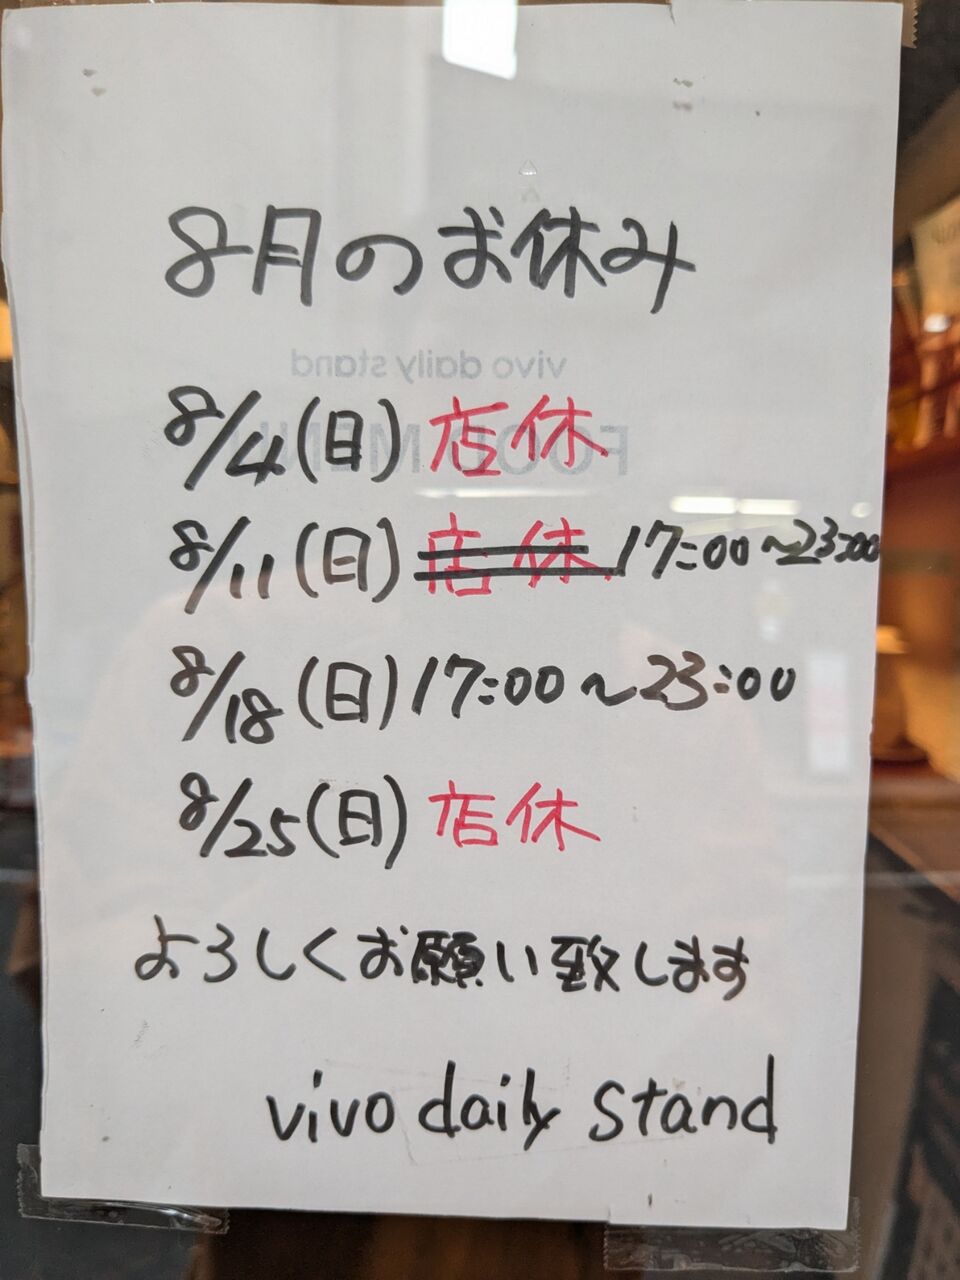 8月のお休み
vivo daily stand
FOOD MENU
8/4(日) 店休
8/11(日) 店休 17:00～23:00
8/18(日) 17:00～23:00
8/25(日) 店休
よろしくお願い致します
vivo daily stand